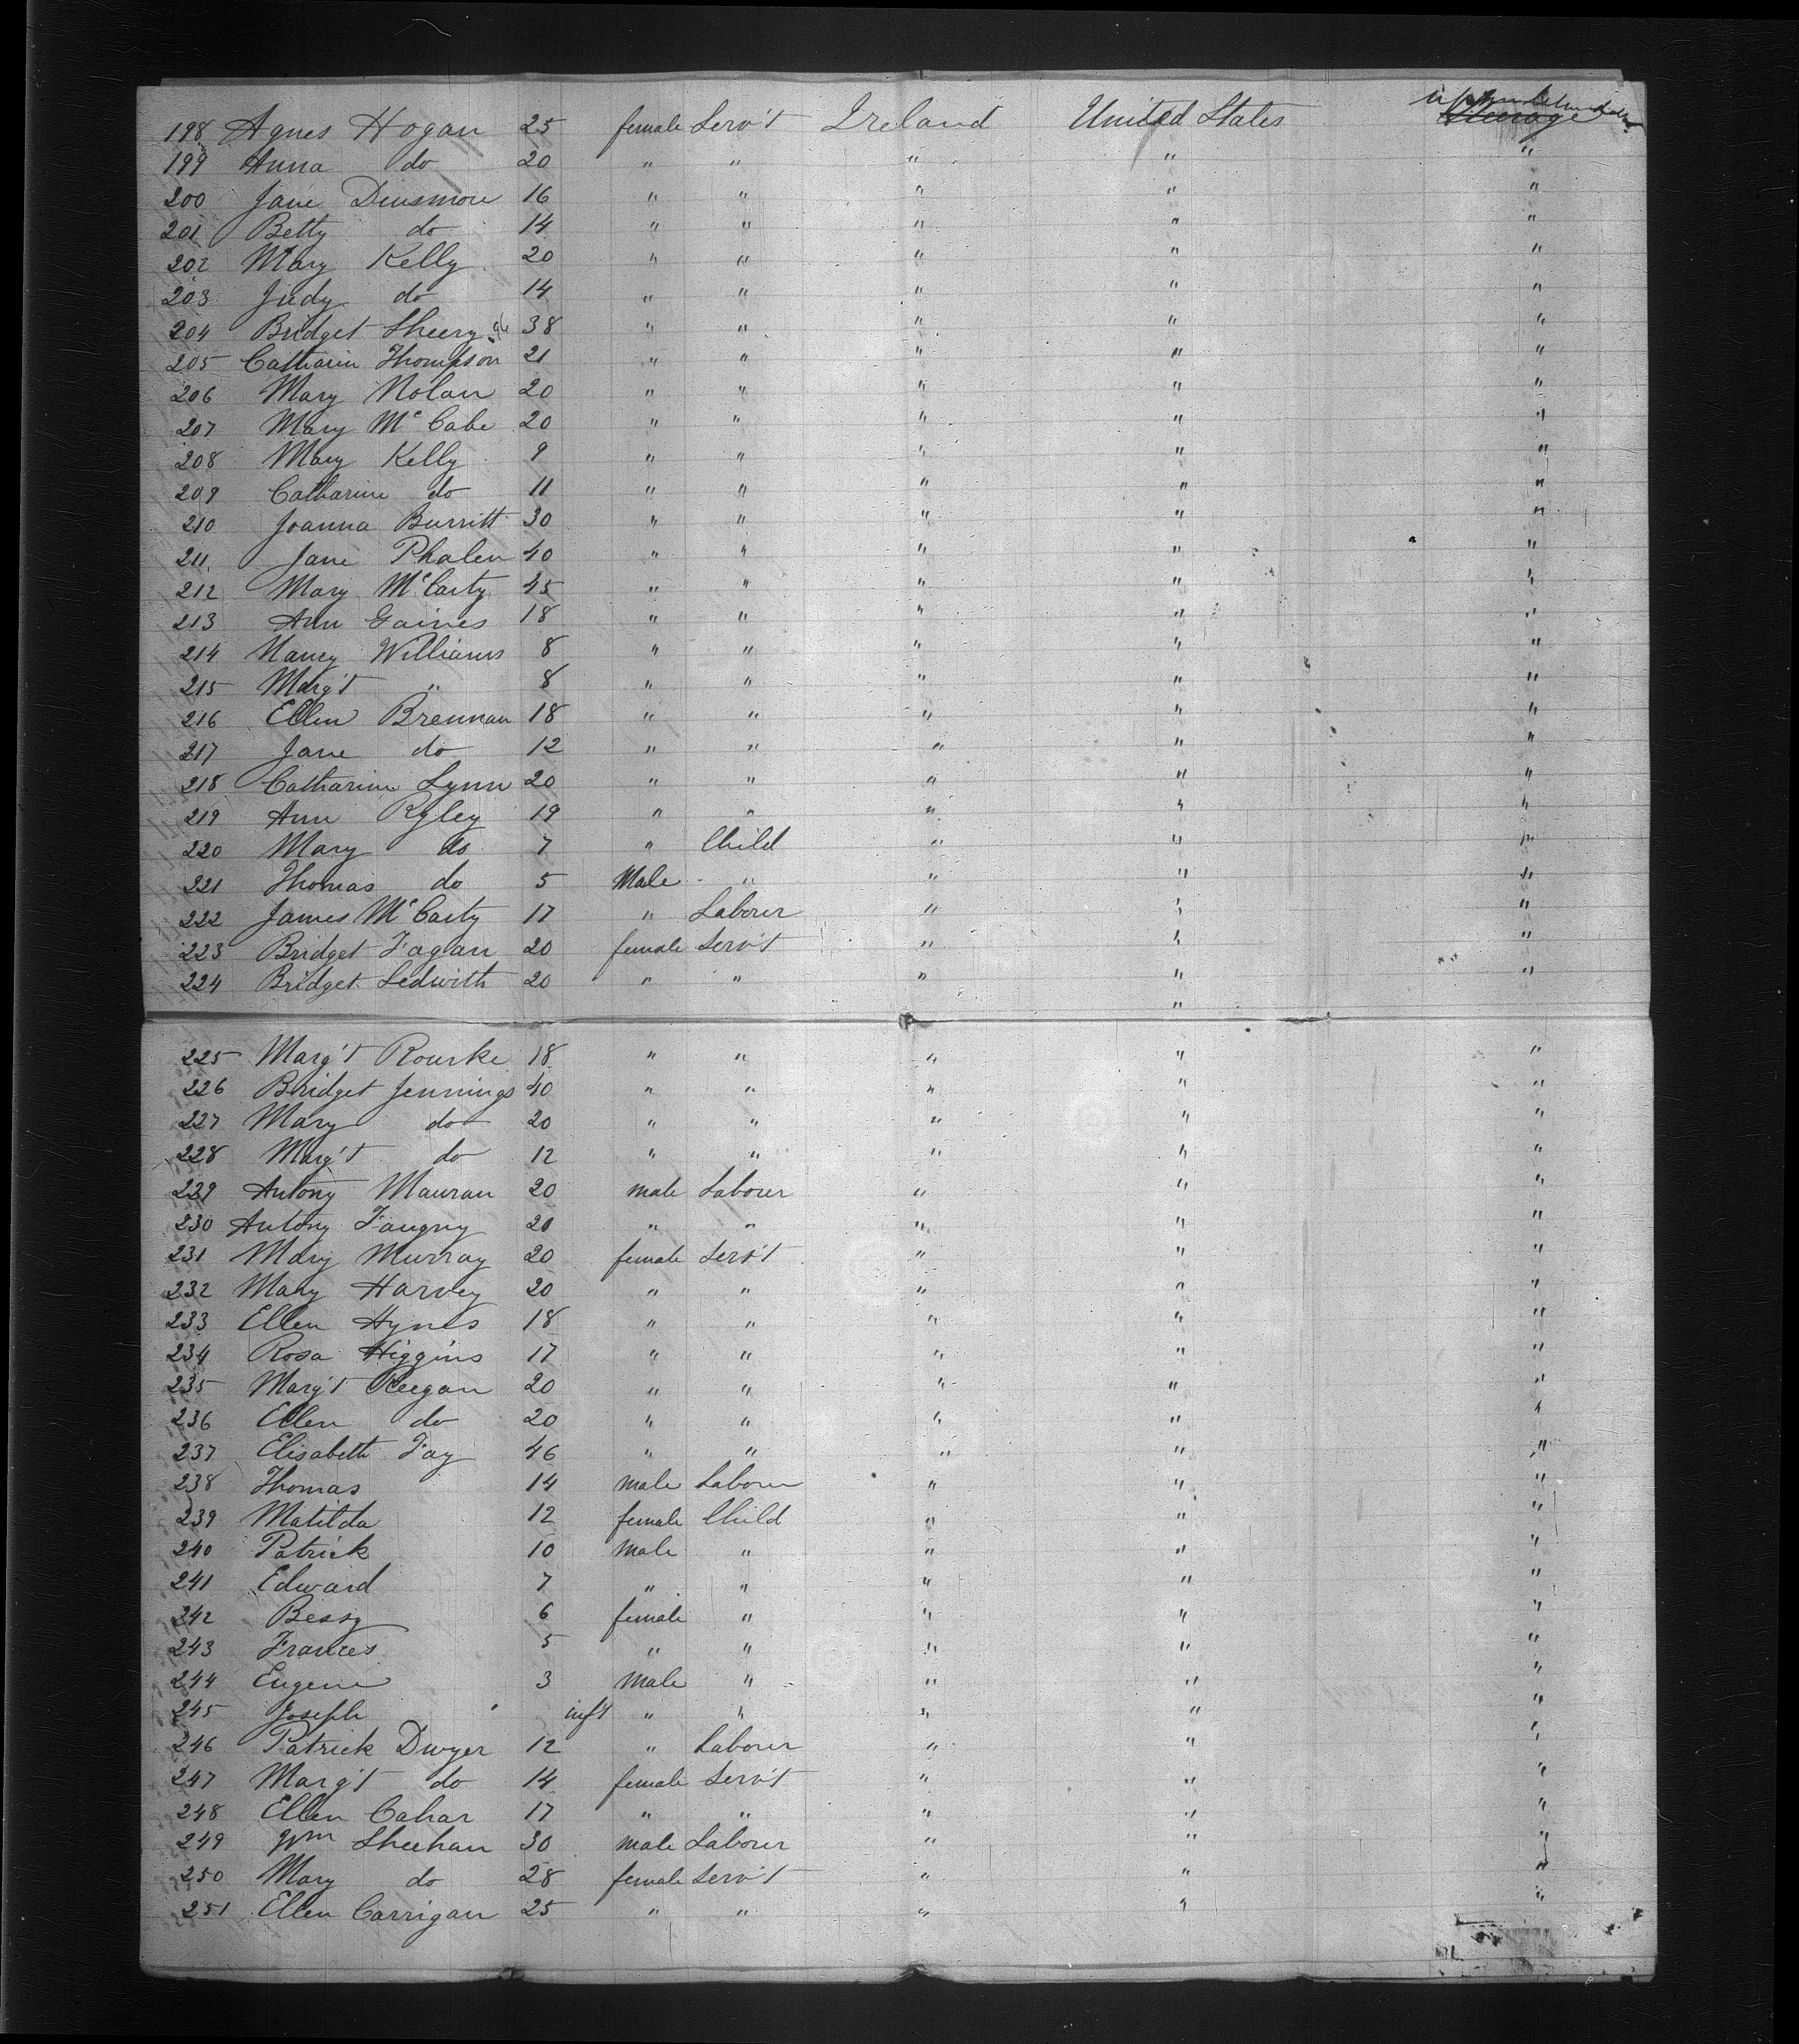 198 Agnes Hogan 25 female Serv't Ireland United States Steerage
199 Anna do 20 " " " " "
200 Jane Dinsmore 16 " " " " "
201 Betty do 14 " " " " "
202 Mary Kelly 20 " " " " "
203 Judy do 14 " " " " "
204 Bridget Sheery 38 " " " " "
205 Catharin Thompson 21 " " " " "
206 Mary Nolan 20 " " " " "
207 Mary McCabe 20 " " " " "
208 Mary Kelly 9 " " " " "
209 Catharine do 11 " " " " "
210 Joanna Burritt 30 " " " " "
211 Jane Phalen 40 " " " " "
212 Mary McCarty 45 " " " " "
213 Ann Gaines 18 " " " " "
214 Nancy Williams 8 " " " " "
215 Marg't " 8 " " " " "
216 Ellen Brennan 18 " " " " "
217 Jane do 12 " " " " "
218 Catharine Lynn 20 " " " " "
219 Ann Ryley 19 " " " " "
220 Mary do 7 " Child " " "
221 Thomas do 5 Male " " " "
222 James McCarty 17 " Laborer " " "
223 Bridget Fagan 20 female Serv't " " "
224 Bridget Ledwith 20 " " " " "
"
225 Marg't Rourke 18 " " " " "
226 Bridget Jennings 40 " " " " "
227 Mary do 20 " " " " "
228 Marg't do 12 " " " " "
229 Antony Mauran 20 male Labourer " " "
230 Antony Faugny 20 " " " " "
231 Mary Murray 20 female Serv't " " "
232 Mary Harvey 20 " " " " "
233 Ellen Hynes 18 " " " " "
234 Rosa Higgins 17 " " " " "
235 Marg't Keegan 20 " " " " "
236 Ellen do 20 " " " " "
237 Elisabeth Fay 46 " " " " "
238 Thomas 14 male Laborer " " "
239 Matilda 12 female Child " " "
240 Patrick 10 Male " " " "
241 Edward 7 " " " " "
242 Bessy 6 female " " " "
243 Frances 5 " " " " "
244 Eugene 3 Male " " " "
245 Joseph inf't " " " " "
246 Patrick Dwyer 12 " Labourer " " "
247 Marg't do 14 female Serv't " " "
248 Ellen Cahar 17 " " " " "
249 Wm Sheehan 30 male Laborer " " "
250 Mary do 28 female Serv't " " "
251 Ellen Carrigan 25 " " " " "